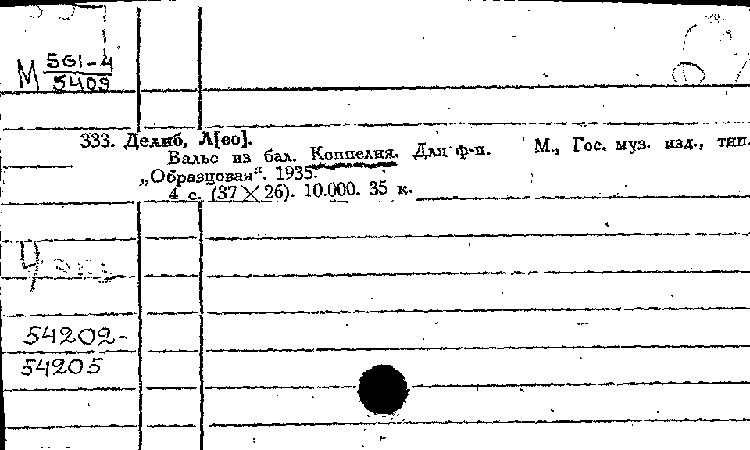 M 561-4
5409
333. Делиб, Л[ео].
Вальс из бал. Коппелия. Для ф-п. М., Гос. муз. изд., тип.
„Образцовая“. 1935.
4 с. (37 × 26). 10.000. 35 к.
4 экз
54202-
54205